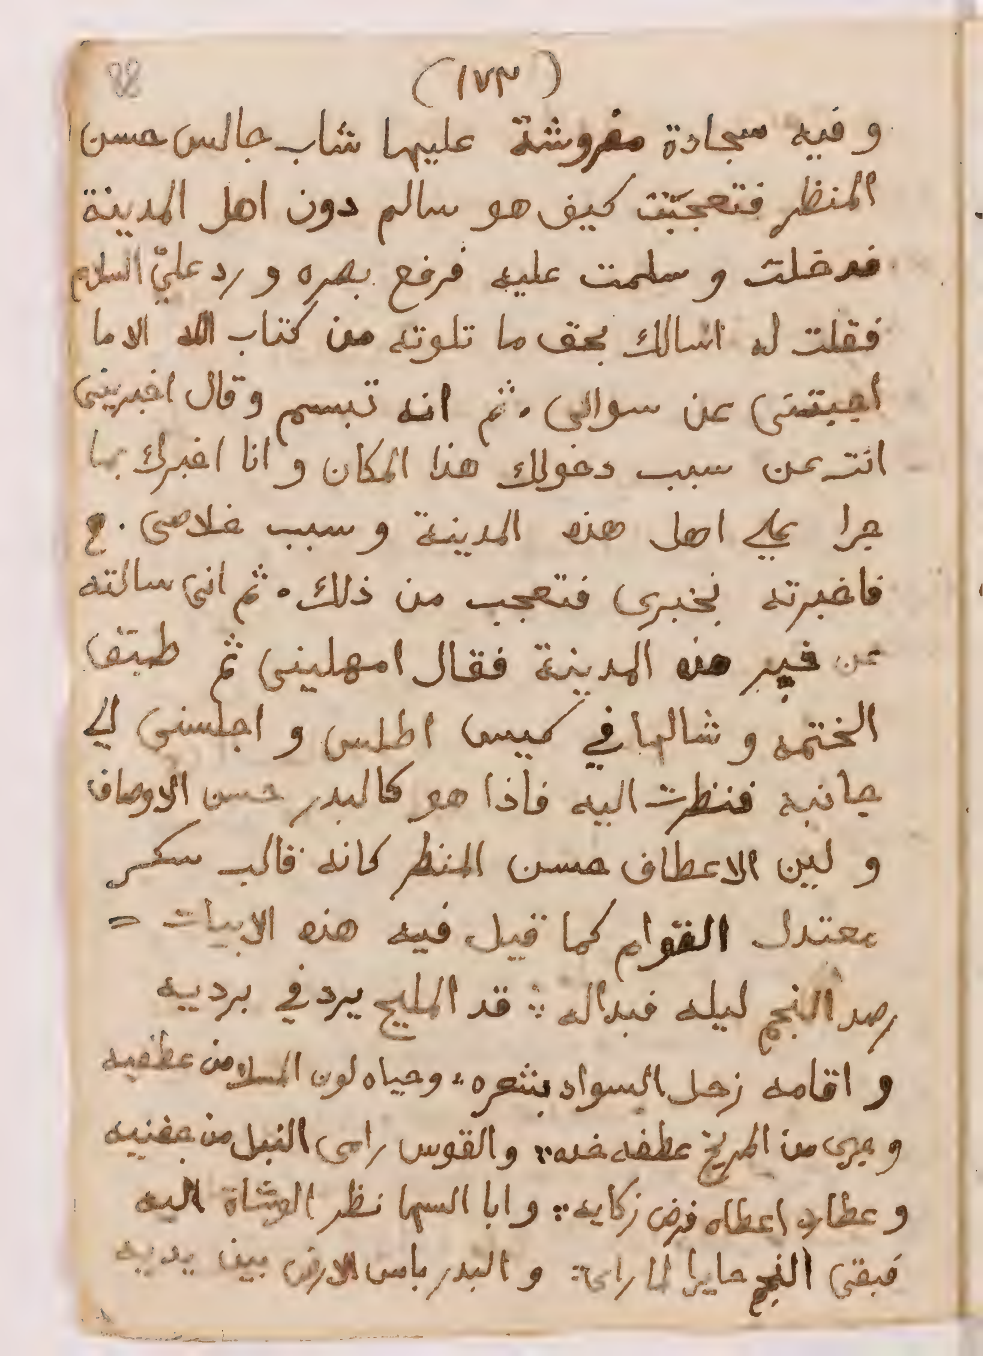 (١٧٣)
و فيه سجادة مفروشة عليها شاب جالس حسن
المنظر فتعجبت كيف هو سالم دون اهل المدينة
فدخلت و سلمت عليه فرفع بصره و رد عليّ السلام
فقلت له اسالك بحق ما تلوته من كتاب الله الا ما
اجبتنى عن سوالى . ثم انه تبسم وقال اخبرينى
انت عن سبب دخولك هذا المكان و انا اخبرك بما
جرا على اهل هذه المدينة و سبب خلاصى .
فاخبرته بخبرى فتعجب من ذلك . ثم انى سالته
عن خبر هذه المدينة فقال امهلينى ثم طبق
الختمه و شالها في كيس اطلس و اجلسنى الي
جانبه فنظرت اليه فاذا هو كالبدر حسن الاوصاف
و لين الاعطاف حسن المنظر كانه قالب سكر
معتدل القوام كما قيل فيه هذه الابيات =
رصد النجم ليله فبداله ∴ قد المليح يرد في برديه
و اقامه زحل السواد بشعره ، وحياه لون المسك من عطفيه
و من المريخ عطفه خده ∴ والقوس رامى النبل من جفنيه
و عطارد اعطاه فرض زكايه ∴ و ابا السها نظر الوشاة اليه
فبقى النجم حايرا لما راى ∴ و البدر باس الارض بين يديه